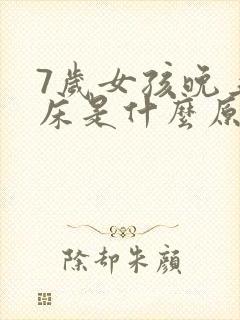 7歲女孩晚
床是什麼原
除却朱顔